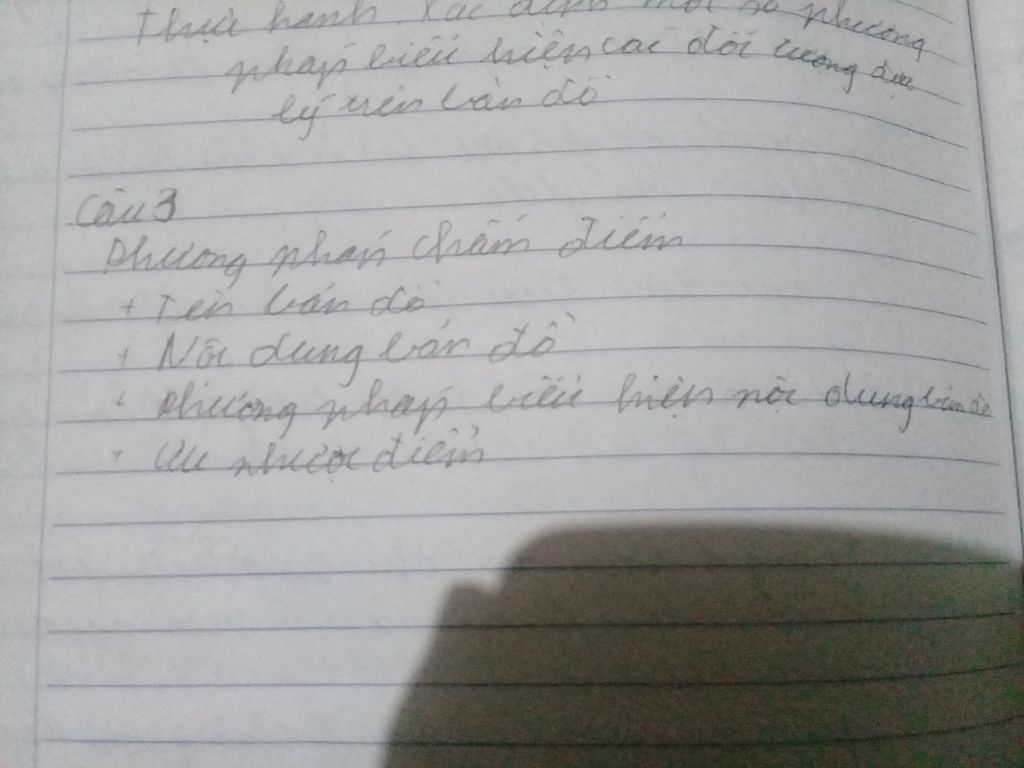 Thực hành. Xác định một số phương
pháp biểu hiện các đối tượng địa
lý trên bản đồ
Câu 3
Phương pháp chấm điểm
+ Tên bản đồ
+ Nội dung bản đồ
+ Phương pháp biểu hiện nội dung bản đồ
+ Ưu nhược điểm